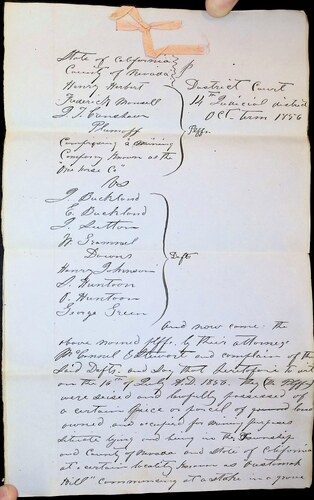 State of California
County of Nevada
Henry Herbert
Frederick Mansell
J. T. Fanshaw
Plaintiff
Composing a Mining
Company known as the
"One Horse Co"
Plffs.
District Court
14th Judicial district
Oct. Term 1856
vs
J Buckland
E. Buckland
J. Sutton
W. Trammel
Downs
Henry Johnson
S. Huntoon
O. Huntoon
George Green
Defts
And now come the
above named plffs. by their attorneys
McConnel & Stewart and complain of the
said Defts. and say that heretofore to wit
on the 16th of July A.D 1856 they (the Plffs)
were seized and lawfully possessed of
a certain piece or parcel of ground
owned and occupied for mining purposes
situate lying and being in the Township
and County of Nevada and State of California
at a certain locality known as
Hill" commencing at a stake in a